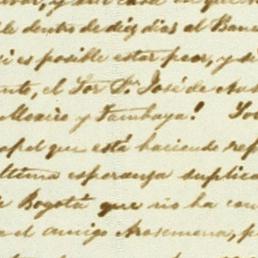 de dentro de diez dias al Banc
si es posible estar peor, y si
nte, el Sor Dn José de
Mexico y Tambaya!
papel que está haciendo rep
ultima esperanza suplica
Bogotá que no ha con
a el amigo Arosemena, p